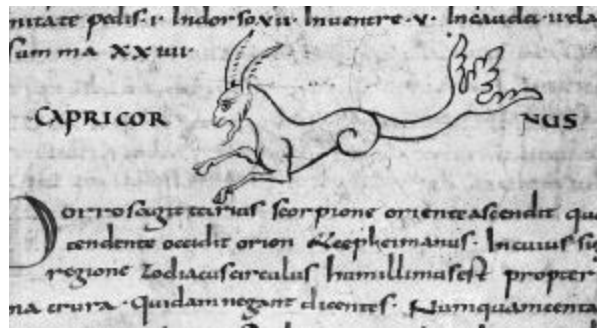 nitate pedis · i · In dorso xii · In ventre · v · In cauda · ii · cla
summa XXIIII ·
CAPRICOR NUS
Porro sagittarius scorpione oriente ascendit
tendente occidit orion & cepheimanus · In cuius
regione zodiacus circulus humillimus est propter
crura · Quidam negant dicentes · Numquam